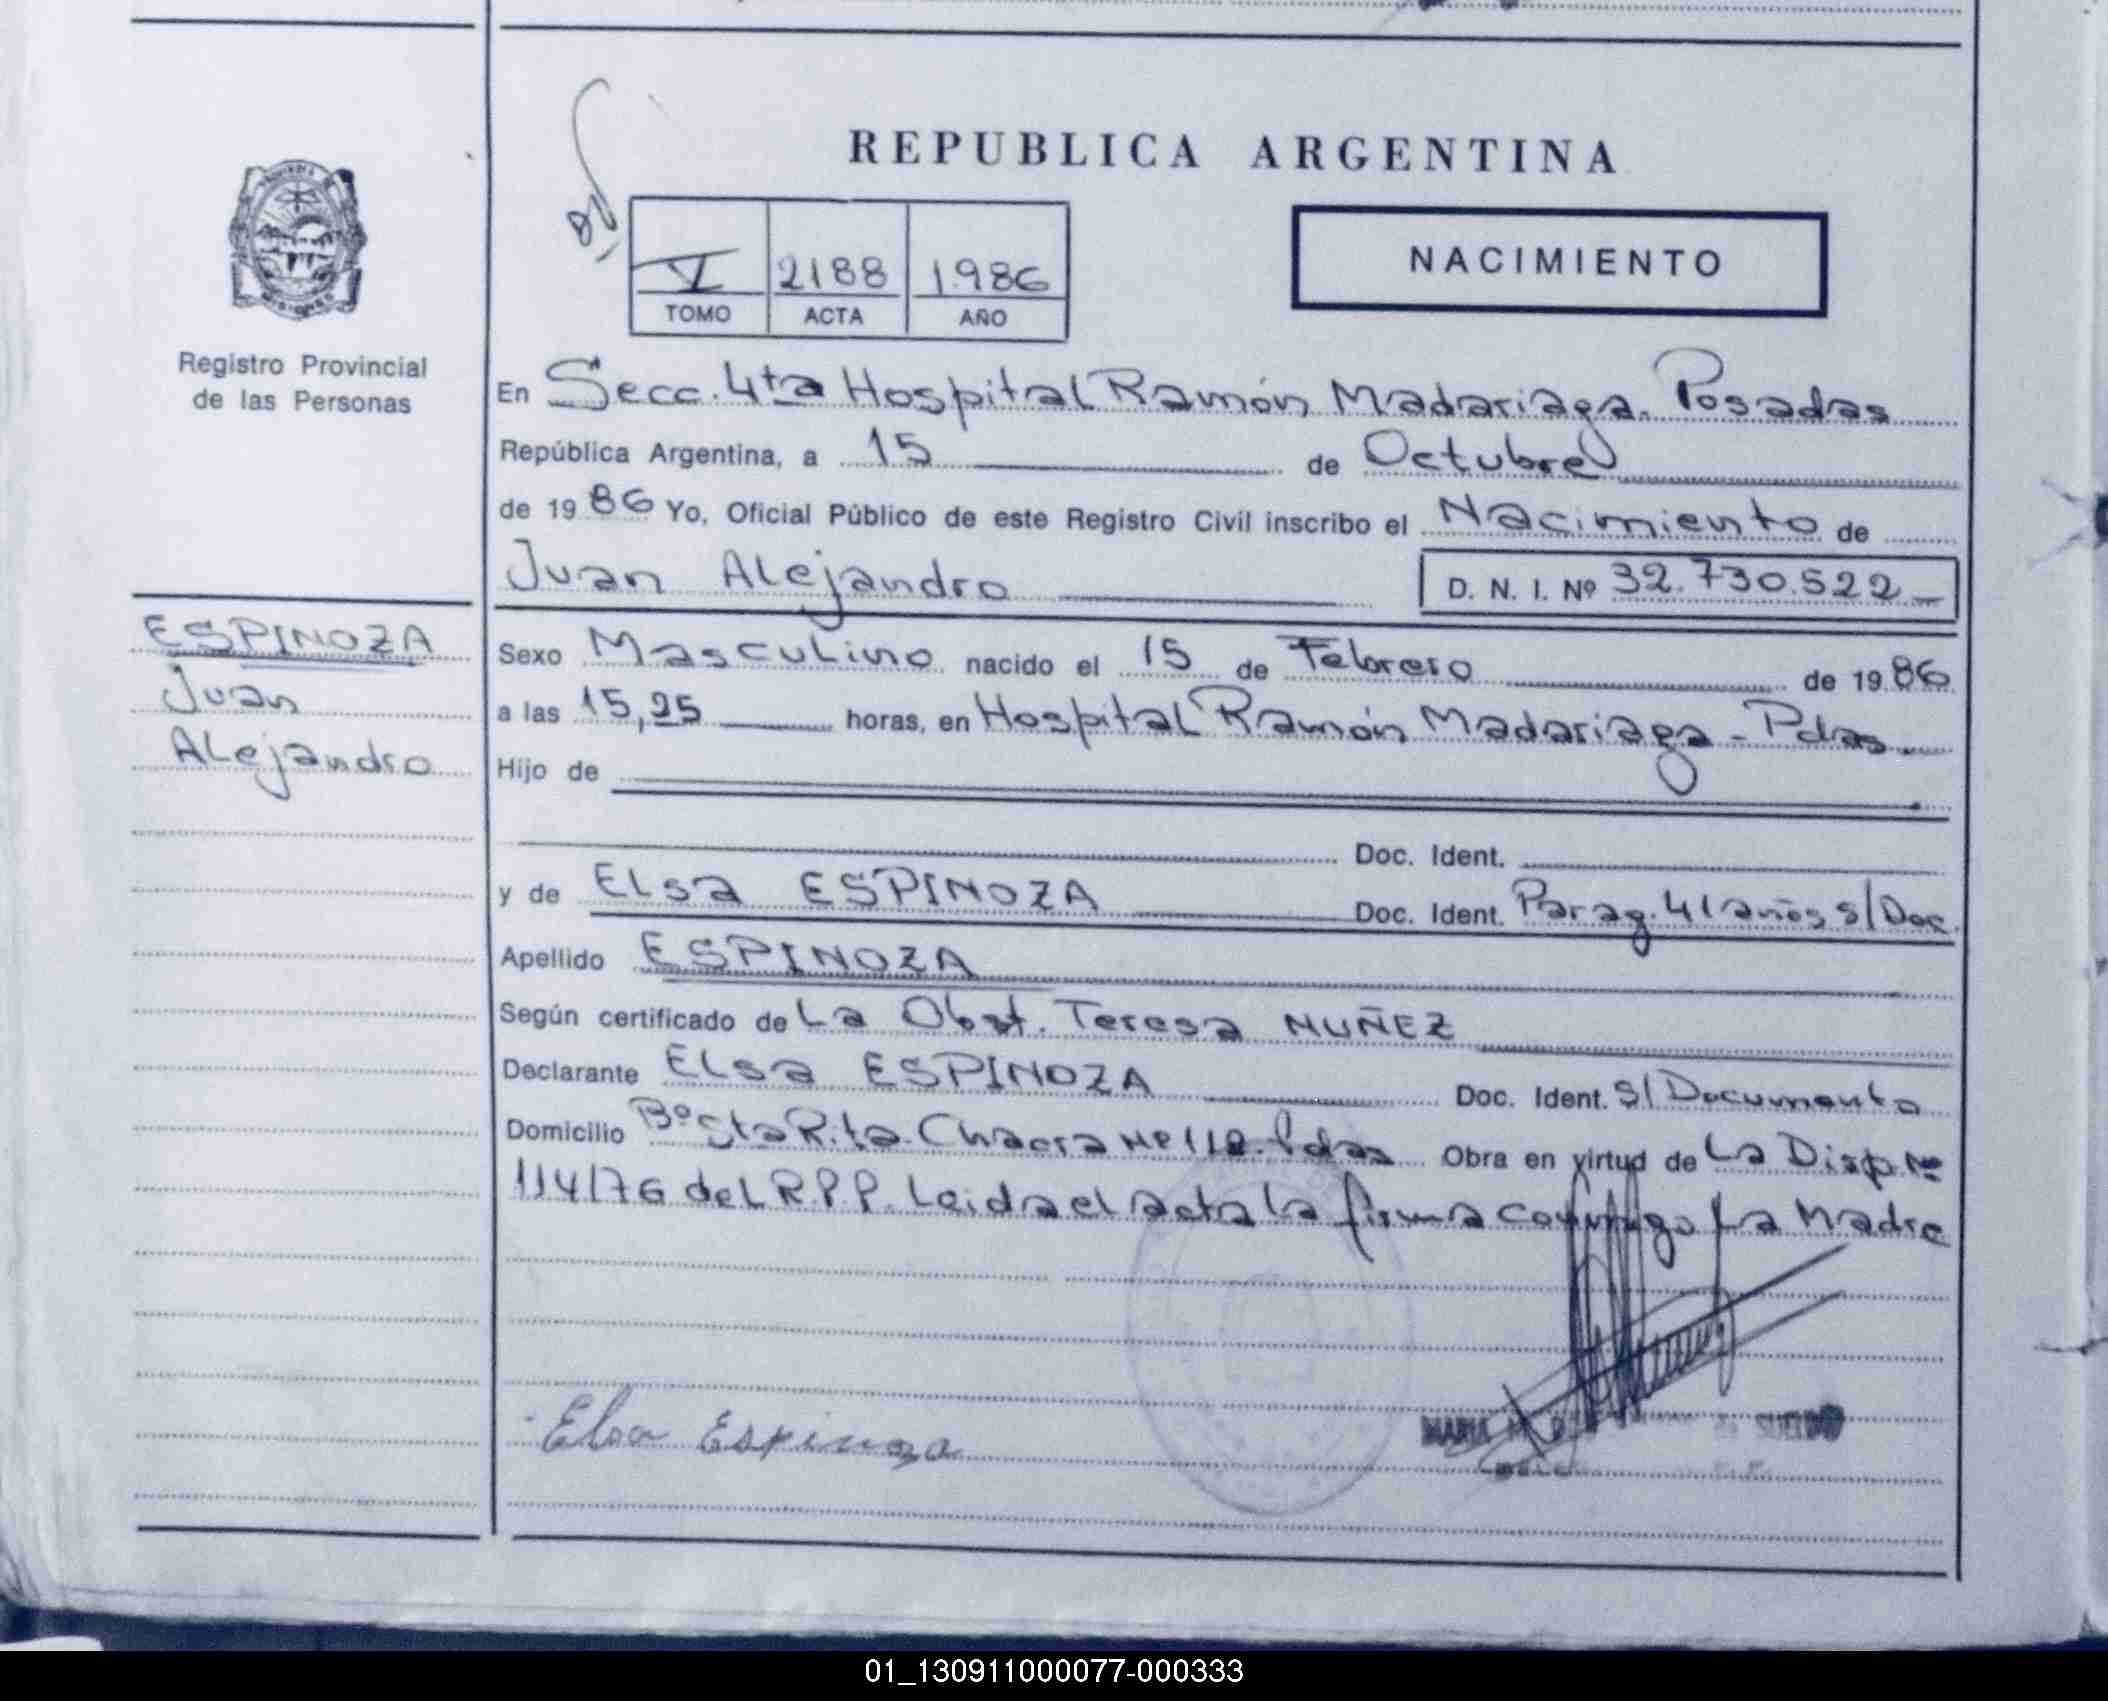 REPUBLICA ARGENTINA
V 2188 1.986
TOMO ACTA AÑO
NACIMIENTO
Registro Provincial
de las Personas
ESPINOZA
Juan
Alejandro
En Secc. 4ta Hospital Ramón Madariaga. Posadas
República Argentina, a 15 de Octubre
de 19 86 Yo, Oficial Público de este Registro Civil inscribo el Nacimiento de
Juan Alejandro D. N. I. Nº 32.730.522
Sexo Masculino nacido el 15 de Febrero de 19 86
a las 15,25 horas, en Hospital Ramón Madariaga - Pdas.
Hijo de
Doc. Ident.
y de Elsa ESPINOZA Doc. Ident. Parag. 41 años s/Doc.
Apellido ESPINOZA
Según certificado de La Obst. Teresa NUÑEZ
Declarante Elsa ESPINOZA Doc. Ident. S/Documento
Domicilio Bº Sta Rita. Chacra Nº 112. Pdas Obra en virtud de La Disp. Nº
114/76 del R.P.P. Leida el acta la firma conmigo La Madre
Elsa Espinoza
MARIA SUELDO
01_130911000077-000333